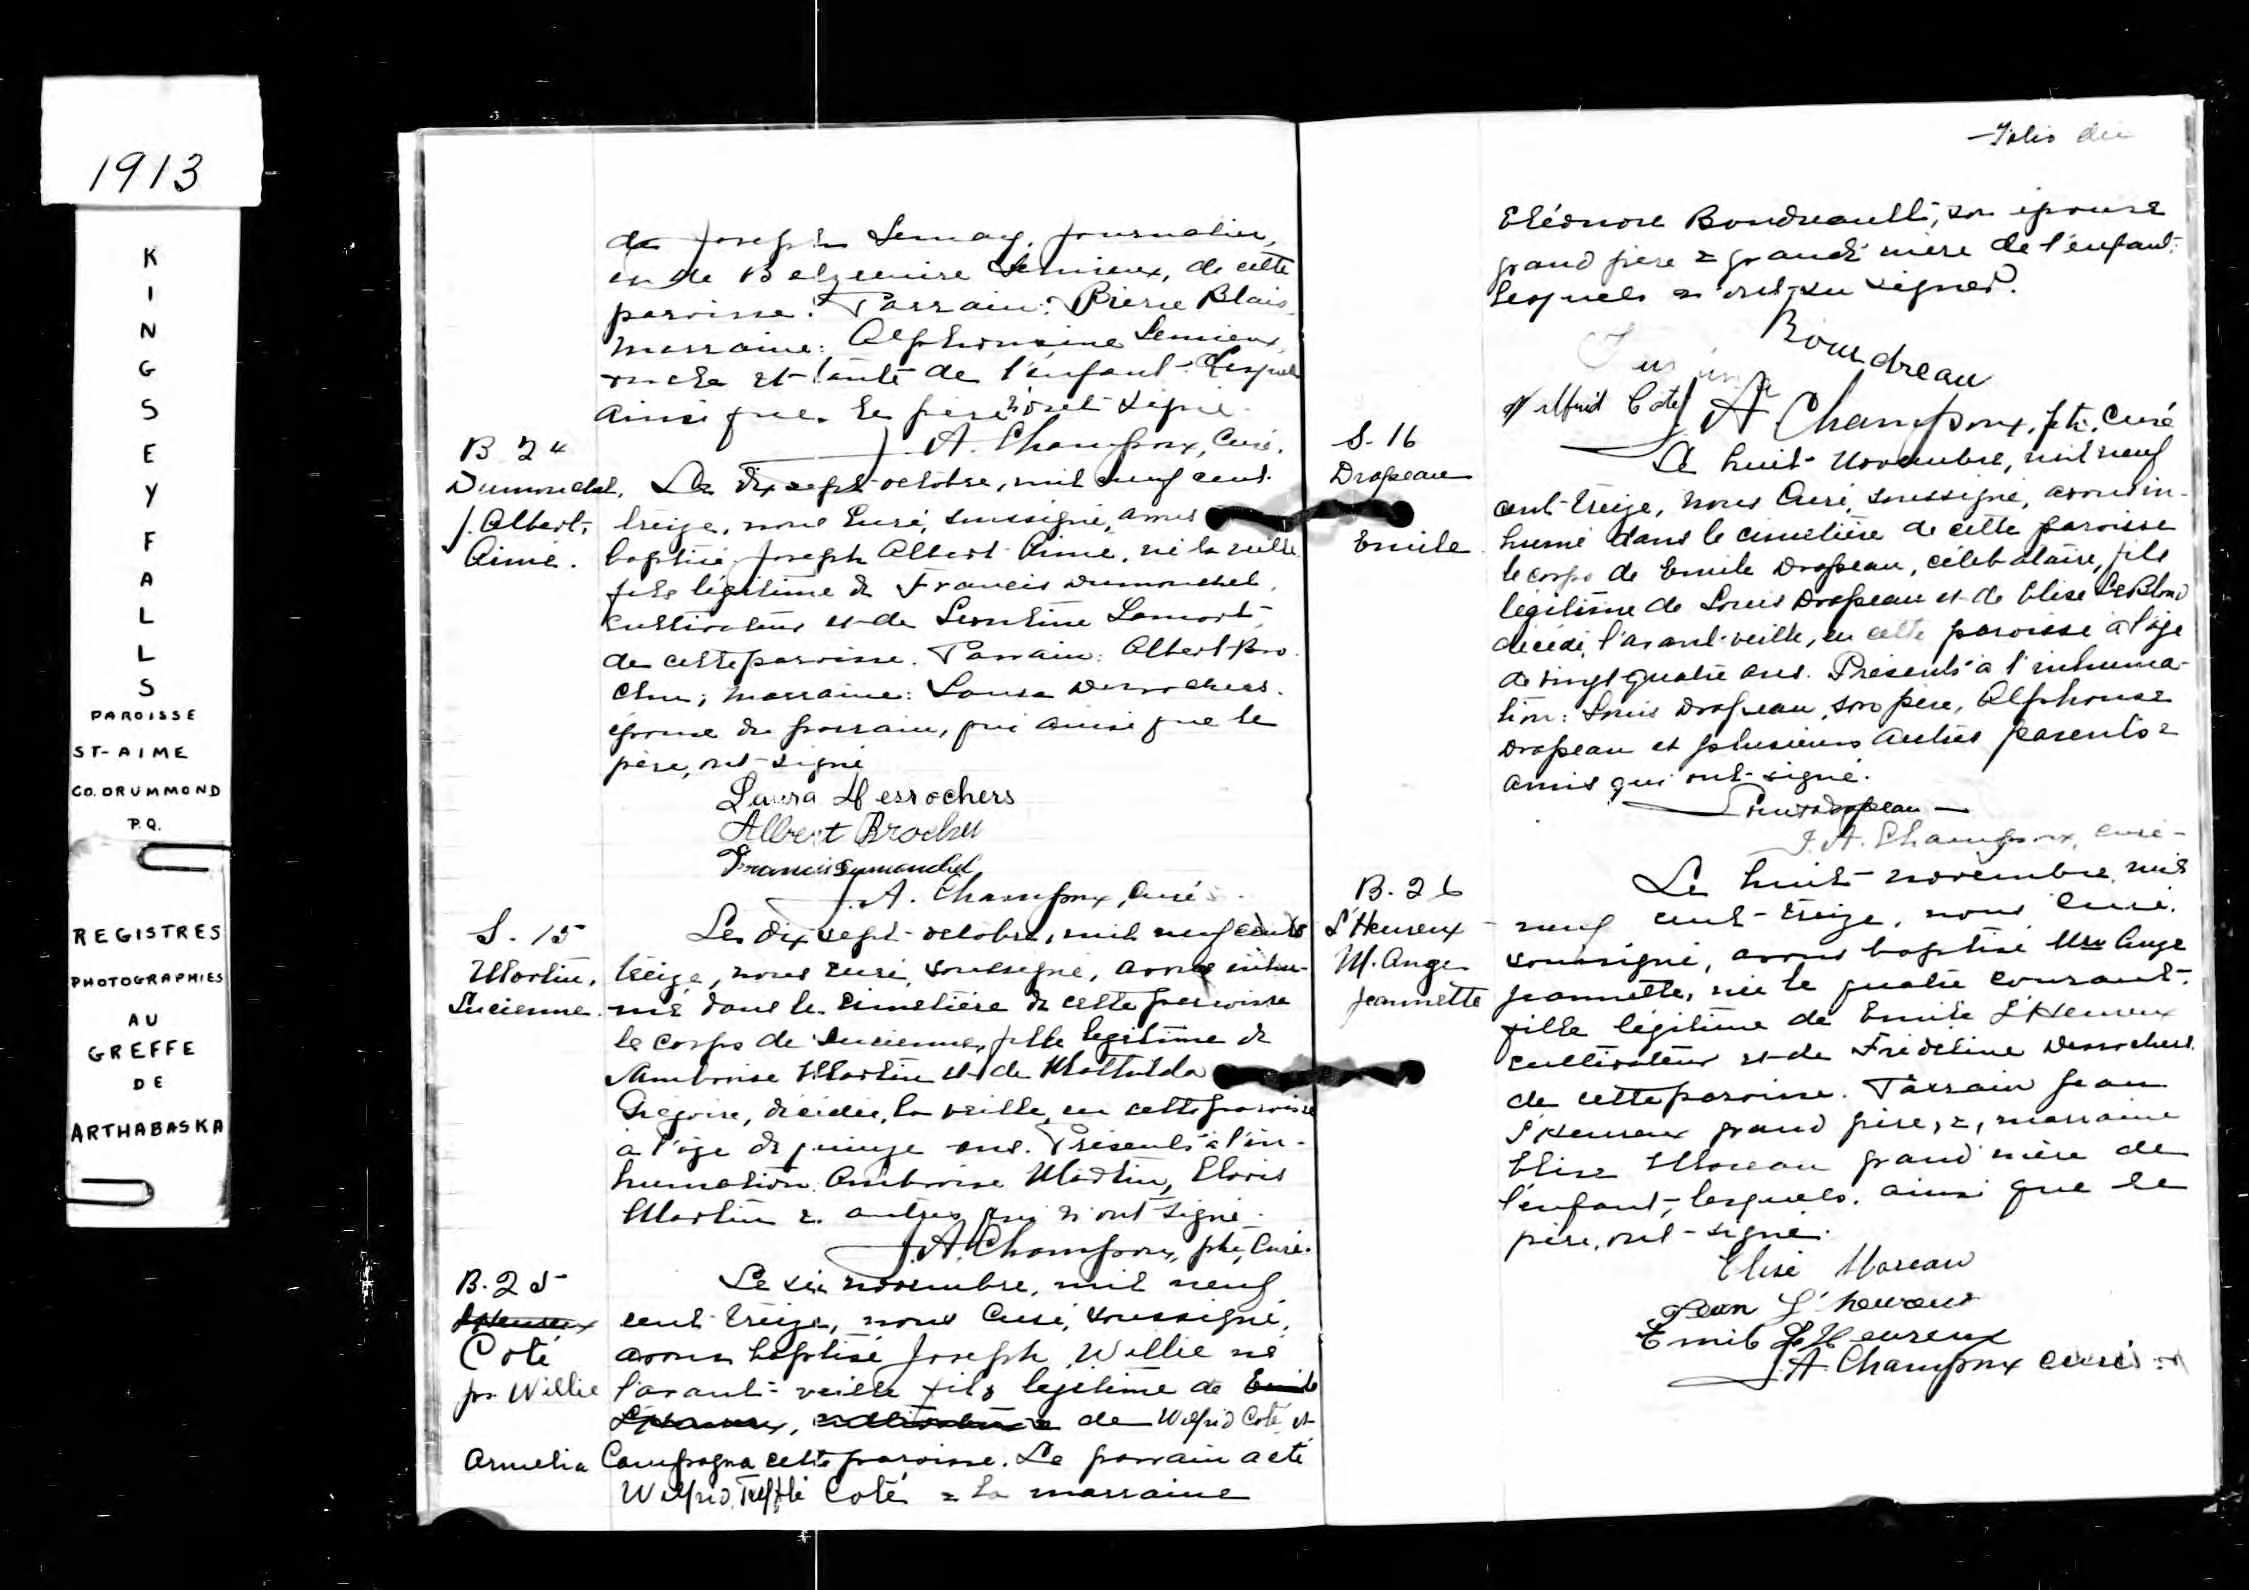 1913
KINGSEY FALLS
PAROISSE
ST-AIME
CO. DRUMMOND
P.Q.
REGISTRES
PHOTOGRAPHIES
AU
GREFFE
DE
ARTHABASKA
de Joseph Lemay, journalier,
et de Belzemire Lemieux, de cette
paroisse. Parrain: Pierre Blais
marraine: Alphonsine Lemieux,
oncle et tante de l'enfant. Lesquels
ainsi que le père n'ont signé.
J. A. Champoux, Curé.
B 24
Dumouchel,
J. Albert,
Aimé.
Le dix sept octobre, mil neuf cent
treize, nous Curé, soussigné, avons
baptisé Joseph Albert Aimé, né la veille
fils légitime de Francis Dumouchel,
cultivateur et de Leontine Lamort,
de cette paroisse. Parrain: Albert Bro
chu; marraine: Laura Desrochers.
épouse du parrain, qui ainsi que le
père, ont signé
Laura Desrochers
Albert Brochu
Francis Dumouchel
J. A. Champoux, Curé
S. 15
Martin,
Lucienne.
Le dix sept octobre, mil neuf cent
treize, nous curé, soussigné, avons inhu-
mé dans le cimetière de cette paroisse
le corps de Lucienne, fille legitime de
Ambroise Martin et de Mathilda
Grégoire, décédée, la veille, en cette paroisse
à l'âge de quinze ans. Présents à l'in-
humation Ambroise Martin,
Martin & autres qui n'ont signé.
J. A. Champoux, ptre, Curé.
B. 25
L'Heureux
Coté
jos. Willie
Le six novembre, mil neuf
cent treize, nous Curé, soussigné,
avons baptisé Joseph Willie né
l'avant-veille fils legitime de Emile
L'Heureux, cultivateur & de Wilfrid Coté et
Armelia Campagna cette paroisse. Le parrain a été
Wilfrid Trefflé Coté & la marraine
Folio dix
Eléonore Boudreault, son épouse
grand père & grand'mère de l'enfant.
Lesquels n'ont su signer.
Boudreau
Wilfrid Coté
J A Champoux, ptr. Curé
S. 16
Drapeau
Emile
Le huit Novembre, mil neuf
cent treize, nous Curé, soussigné, avons in-
humé dans le cimetière de cette paroisse
le corps de Emile Drapeau, célibataire, fils
légitime de Louis Drapeau et de Elise LeBlond
décédé, l'avant-veille, en cette paroisse à l'âge
de vingt quatre ans. Présents à l'inhuma-
tion: Louis Drapeau, son père, Alphonse
Drapeau et plusieurs autres parents &
amis qui ont signé.
Louis Drapeau
J. A. Champoux, curé
B. 26
L'Heureux
M. Ange
Jeannette
Le huit novembre mil
neuf cent-treize, nous Curé,
soussigné, avons baptisé Mie Ange
Jeannette, née le quatre courant.
fille légitime de Emile L'Heureux
cultivateur et de Fridoline Desrochers
de cette paroisse. Parrain Jean
L'Heureux grand père, &, marraine
Elise Moreau grand'mère de
l'enfant, lesquels, ainsi que le
père, ont signé.
Elise Moreau
Jean L'heureux
Emile L'Heureux
J. A. Champoux curé